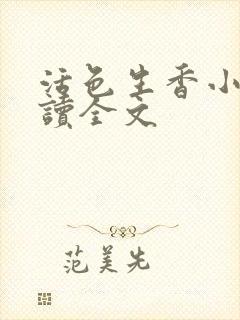 活色生香小
讀全文
范美先